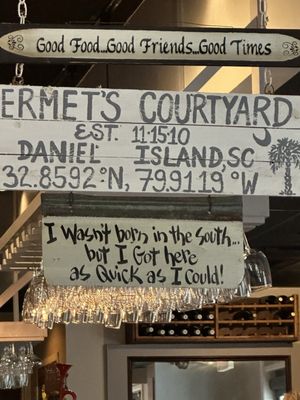 Good Food...Good Friends...Good Times
ERMET'S COURTYARD,
EST. 11.15.10
DANIEL ISLAND, SC
32.8592°N, 79.9119°W
I Wasn't born in the South...
but I Got here
as Quick as I Could!